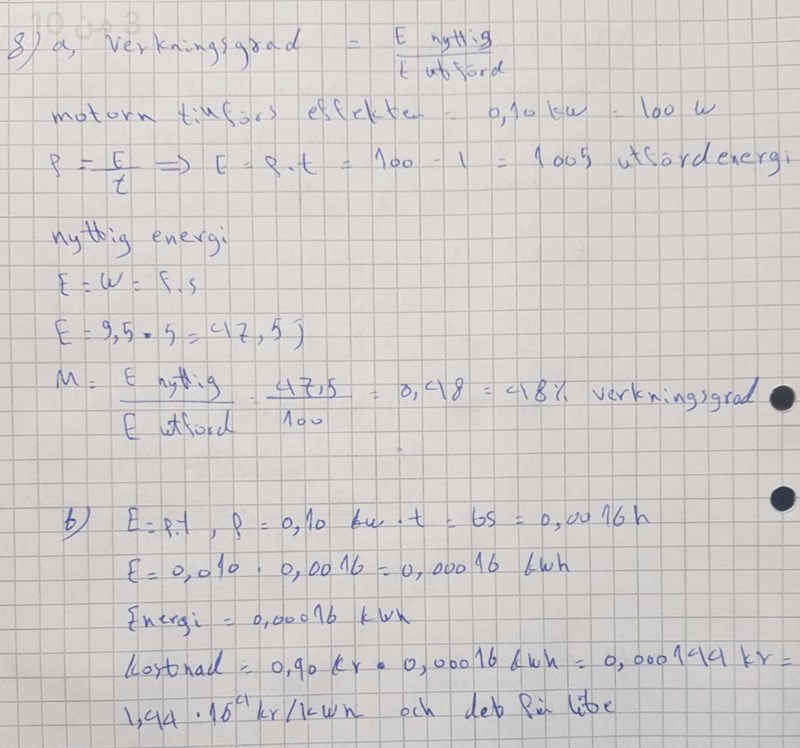 8) a, Verkningsgrad = E nyttig / E utförd
motorn tillförs effekten = 0,10 kW = 100 W
P = E/t => E = P.t = 100 - 1 = 100J utförd energi
nyttig energi
E = W = F.s
E = 9,5 • 5 = 47,5 J
M = E nyttig / E utförd = 47,5 / 100 = 0,48 = 48% verkningsgrad
b) E = P.t , P = 0,10 kW . t = 6s = 0,0016 h
E = 0,010 . 0,0016 = 0,00016 kWh
Energi = 0,00016 kWh
kostnad = 0,90 kr • 0,00016 kWh = 0,000144 kr =
1,44 . 10⁴ kr/kWh och det för